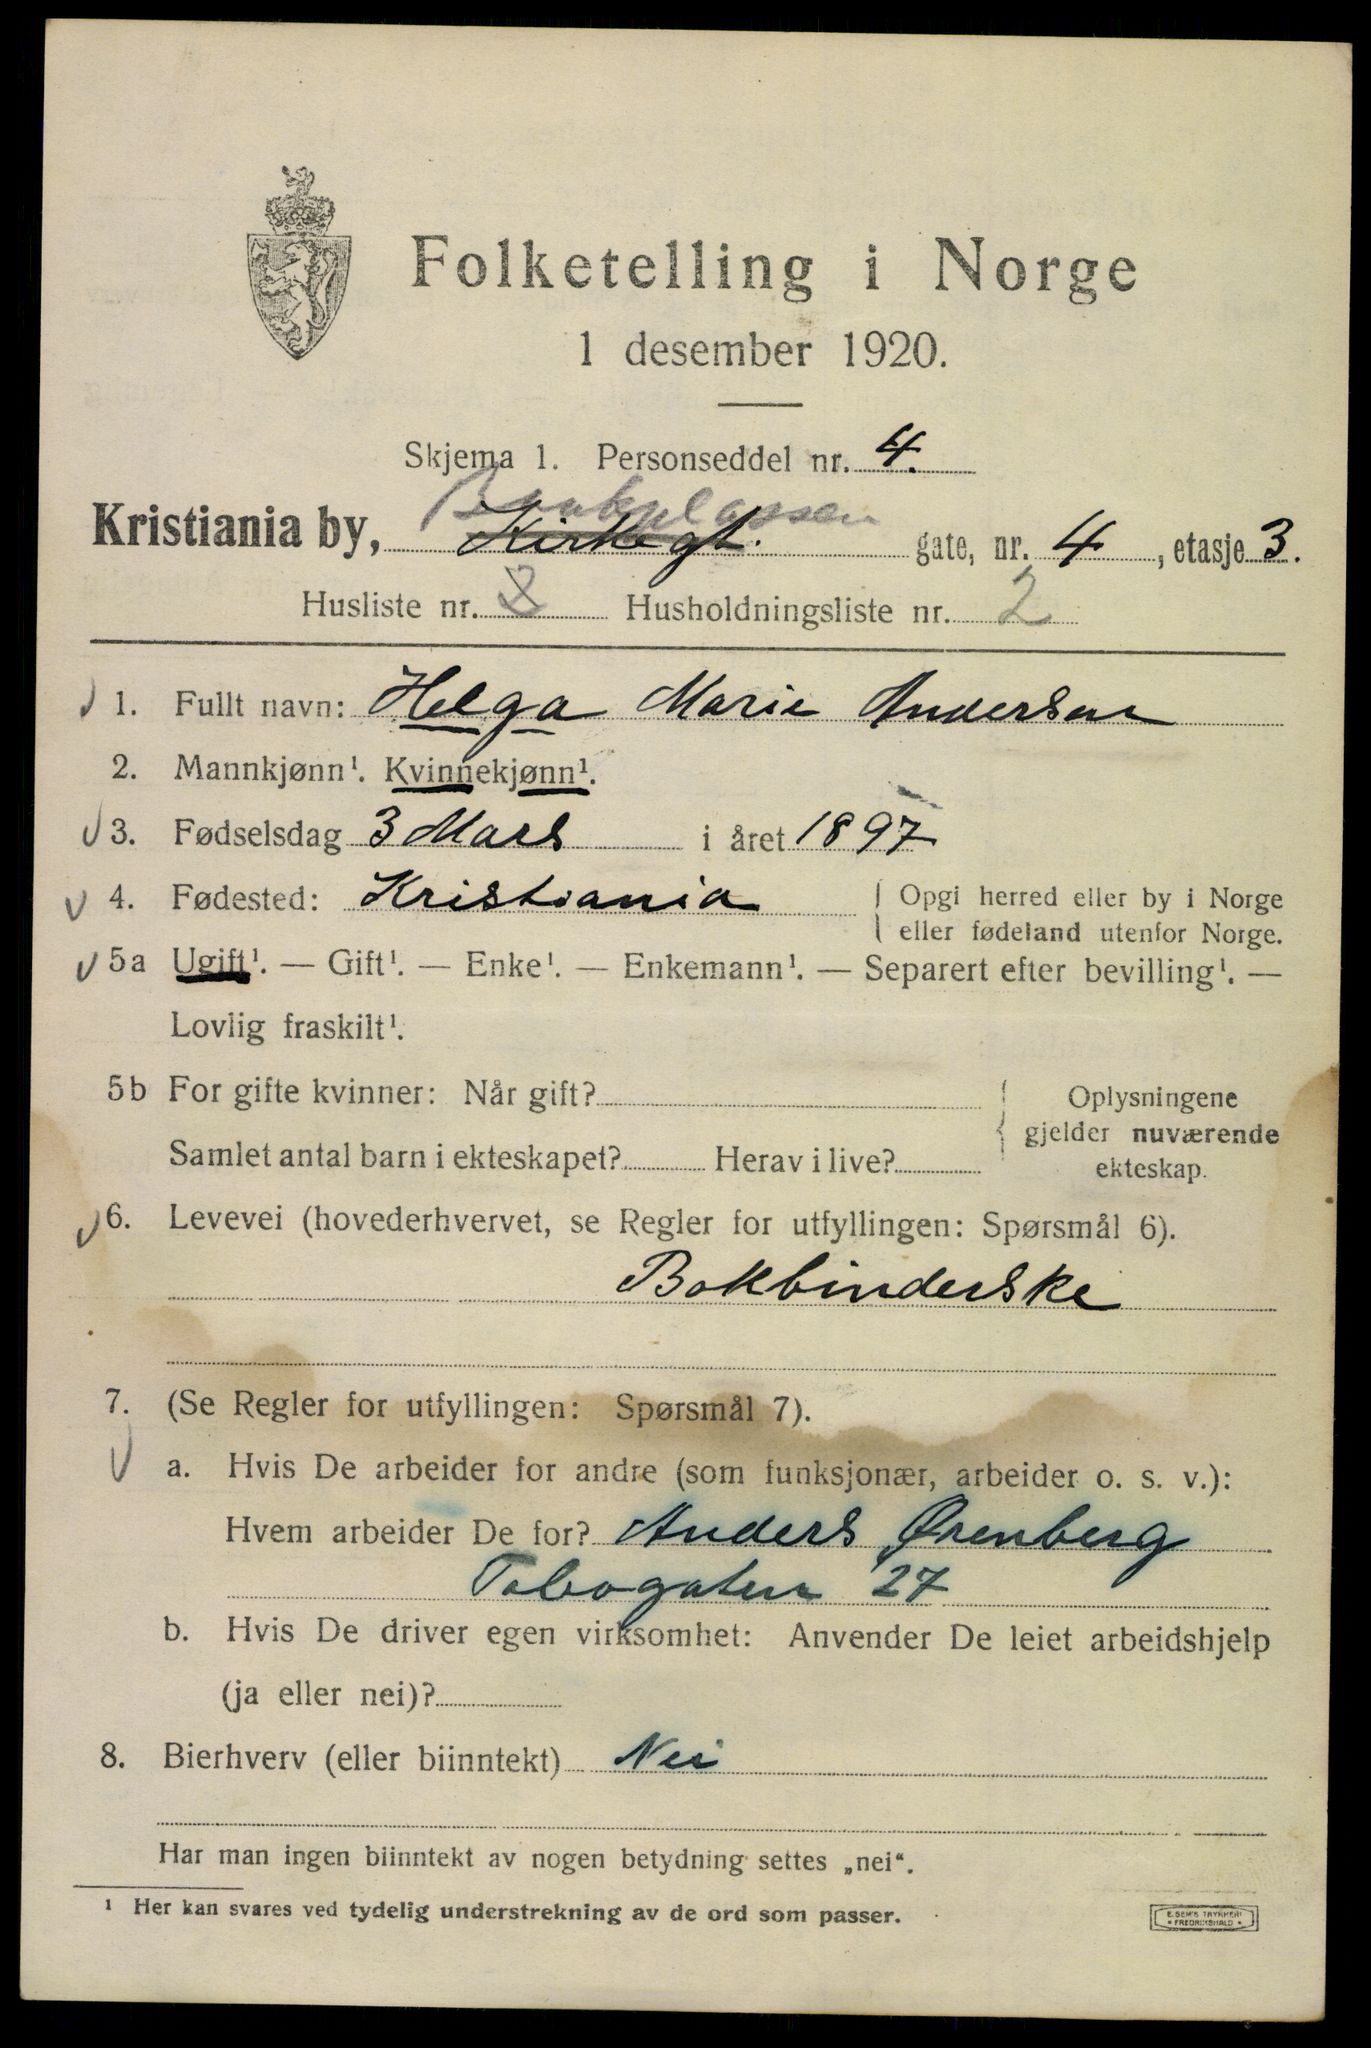 Folketelling i Norge
1 desember 1920.
Skjema 1. Personseddel nr. 4.
Bankplassen
Kristiania by, Kirkegt. gate, nr. 4, etasje 3.
Husliste nr. 2 Husholdningsliste nr. 2
1. Fullt navn: Helga Marie Andersen
2. Mannkjønn¹. Kvinnekjønn¹.
3. Fødselsdag 3 Mars i året 1897
4. Fødested: Kristiania Opgi herred eller by i Norge
eller fødeland utenfor Norge.
5a Ugift¹. — Gift¹. — Enke¹. — Enkemann¹. — Separert efter bevilling¹. —
Lovlig fraskilt¹.
5b For gifte kvinner: Når gift? Oplysningene
gjelder nuværende
Samlet antal barn i ekteskapet? Herav i live? ekteskap.
6. Levevei (hovederhvervet, se Regler for utfyllingen: Spørsmål 6).
Bokbinderske
7. (Se Regler for utfyllingen: Spørsmål 7).
a. Hvis De arbeider for andre (som funksjonær, arbeider o. s. v.):
Hvem arbeider De for? Anders Ørenberg
27
b. Hvis De driver egen virksomhet: Anvender De leiet arbeidshjelp
(ja eller nei)?
8. Bierhverv (eller biinntekt) Nei
Har man ingen biinntekt av nogen betydning settes „nei“.
¹ Her kan svares ved tydelig understrekning av de ord som passer.
E. SEM'S TRYKKERI
• FREDRIKSHALD •